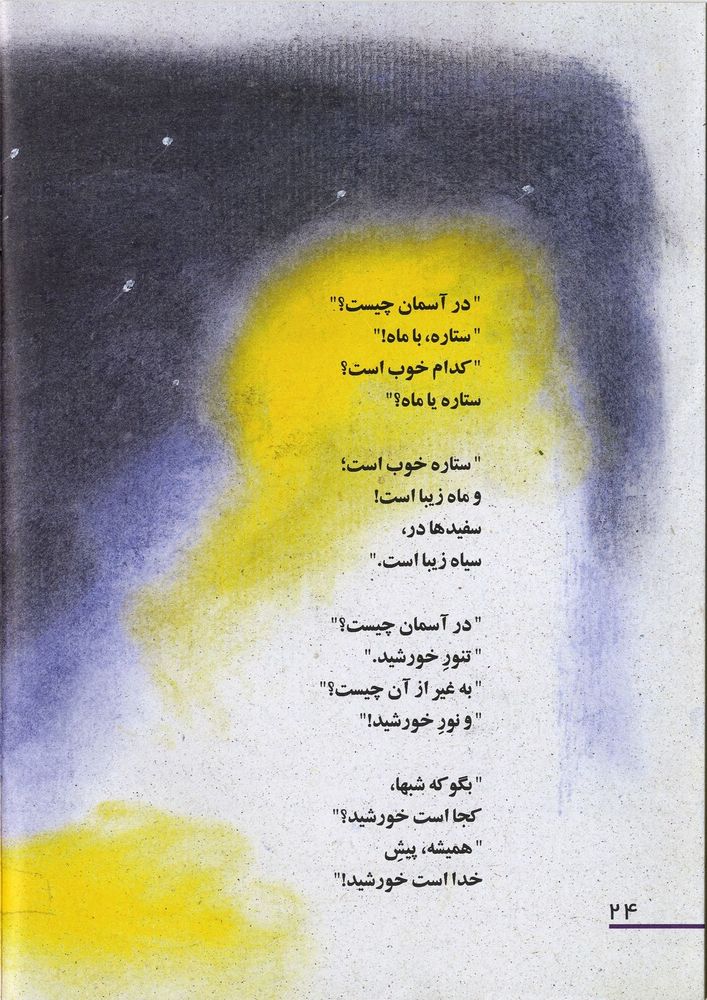 "در آسمان چیست؟"
"ستاره، با ماه!"
"کدام خوب است؟
ستاره یا ماه؟"
"ستاره خوب است؛
و ماه زیبا است!
سفیدها در،
سیاه زیبا است."
"در آسمان چیست؟"
"تنورِ خورشید."
"به غیر از آن چیست؟"
"و نورِ خورشید!"
"بگو که شبها،
کجا است خورشید؟"
"همیشه، پیشِ
خدا است خورشید!"
۲۴